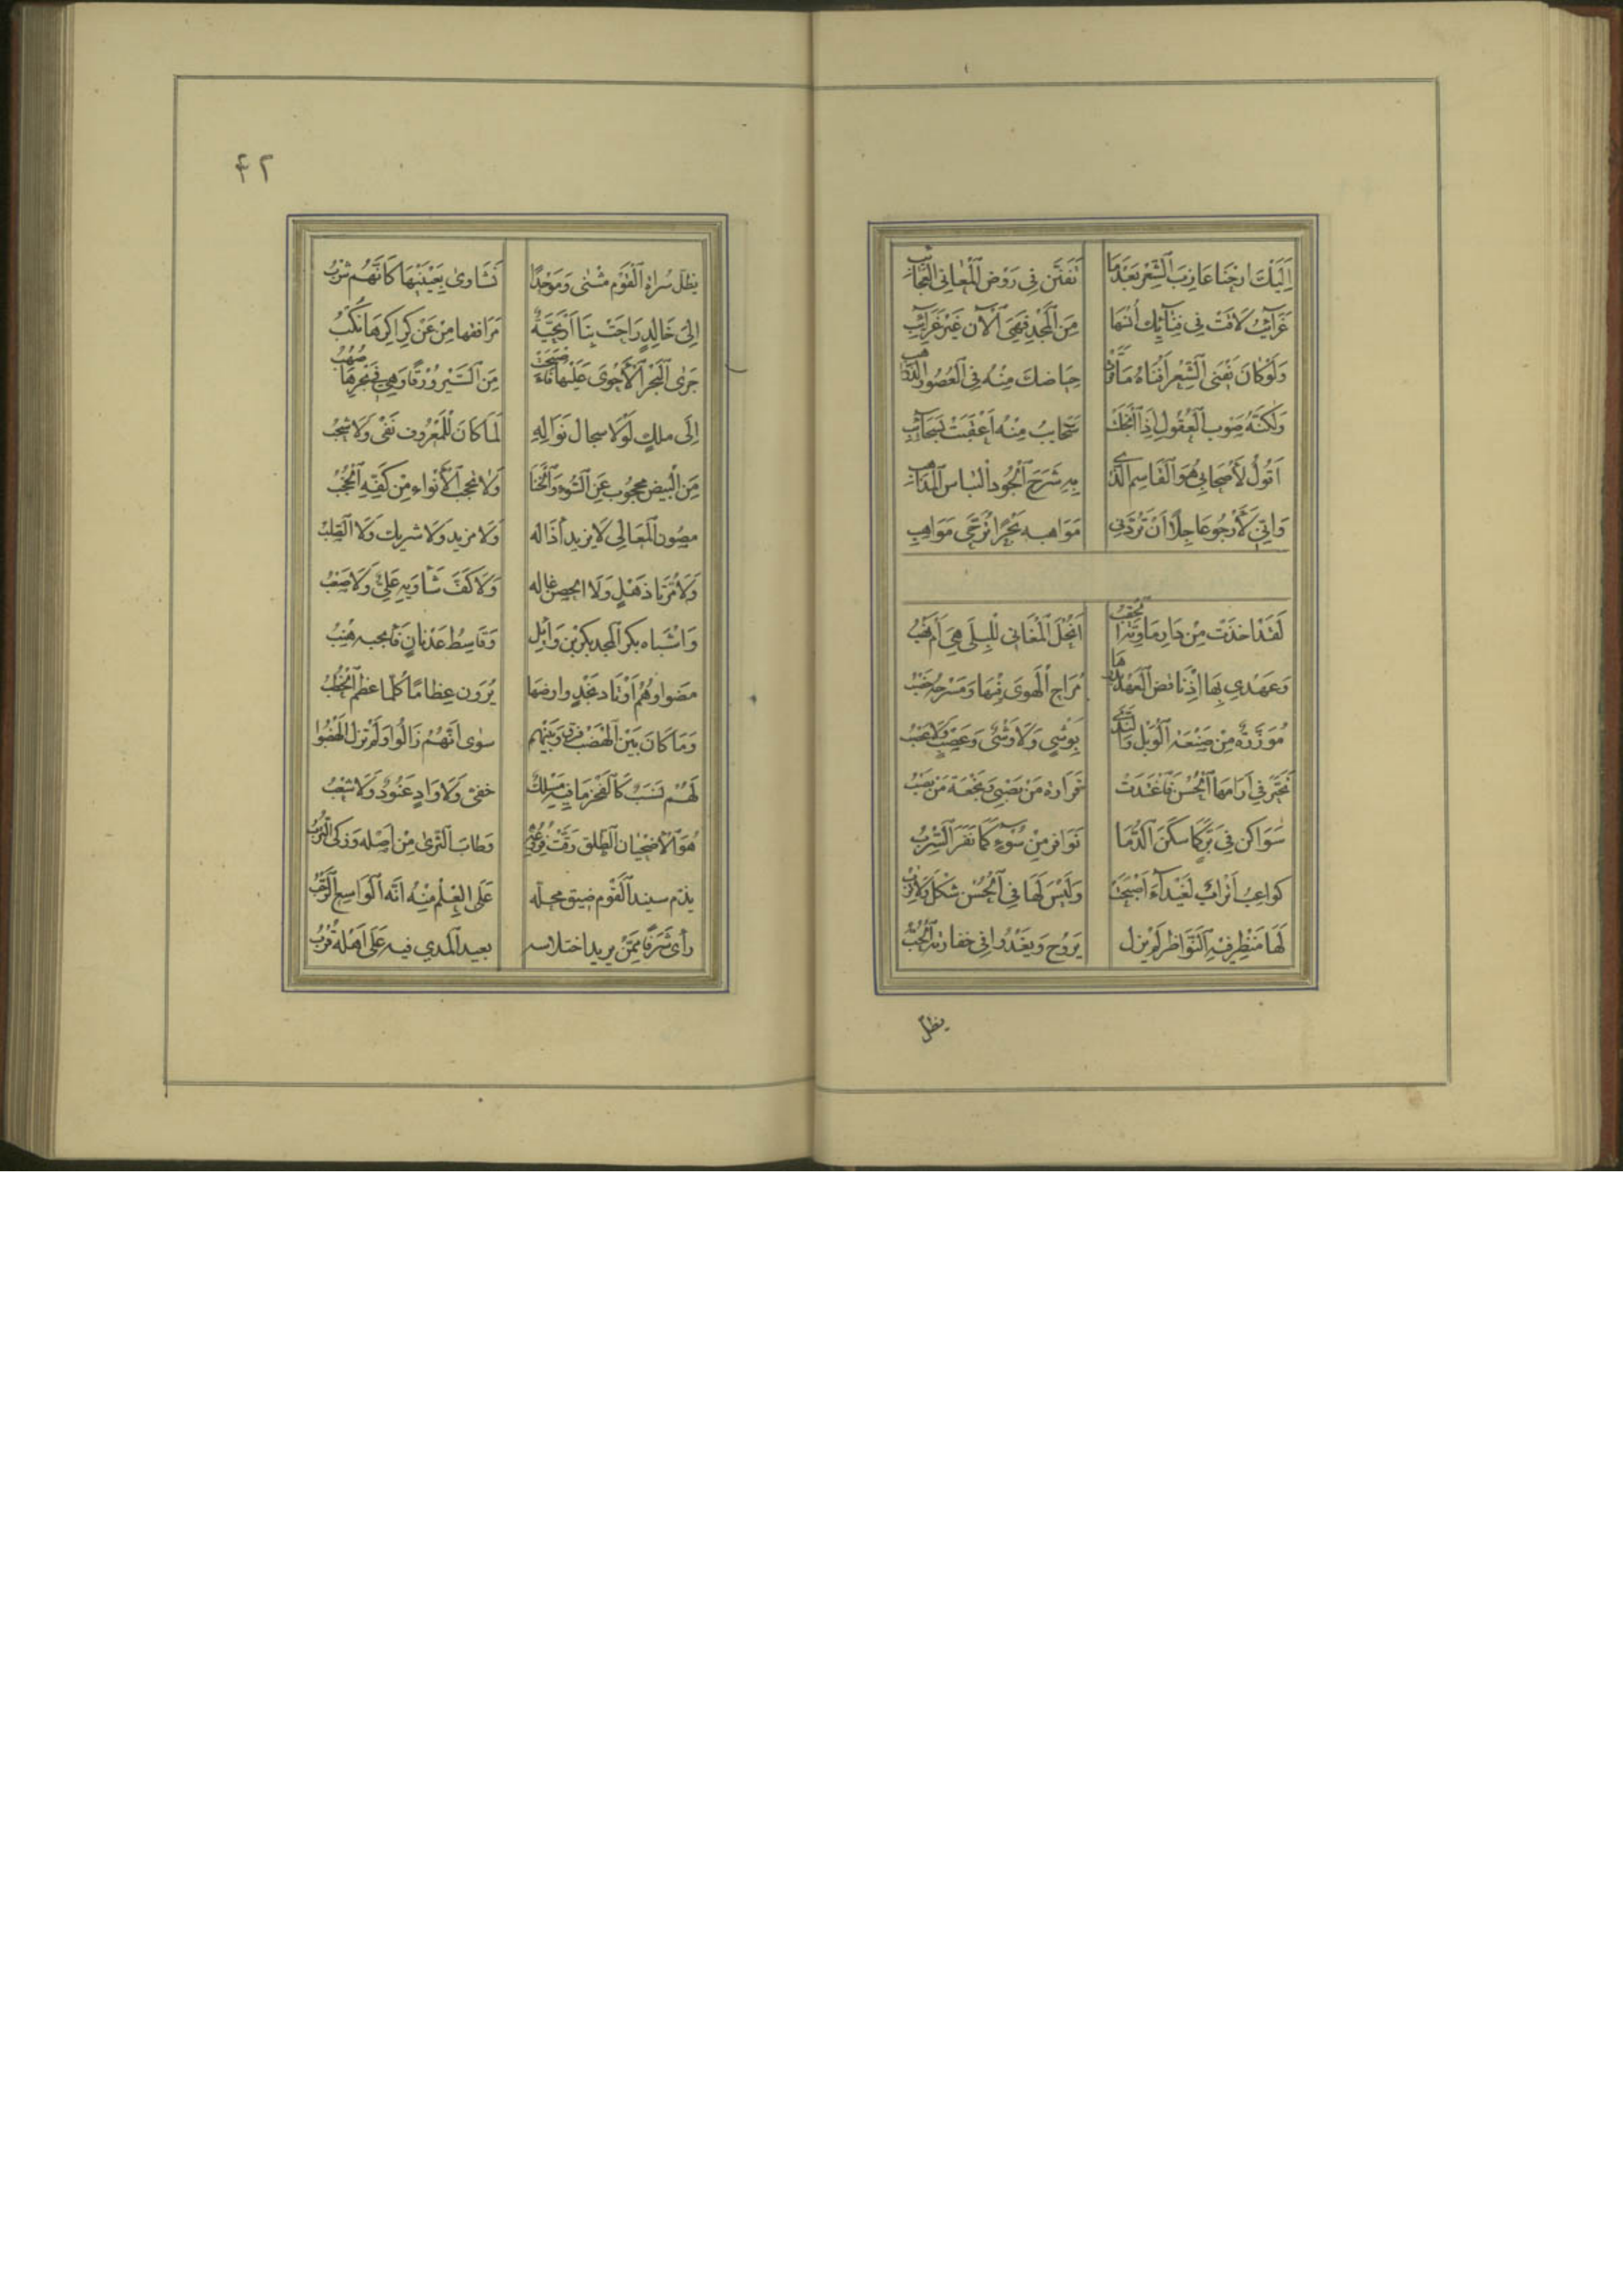 اِلَيْكَ ارحْنَا عَازِبَ الشِّعْرِ بَعْدَمَا تَفَتَّنَ فِي رَوْضِ الْمَعَانِي الْعَجَائِبِ
غَرَائِبُ لَاقَتْ فِي فِنَائِكَ اُنْسَهَا مِنَ الْمَجْدِ فَهْيَ الْآنَ غَيْرُ غَرَائِبِ
وَلَوْ كَانَ يَفْنَى الشِّعْرُ اَفْنَاهُ مَا قَرَتْ حِيَاضكَ مِنْهُ فِي الْعُصُورِ الذَّوَاهِبِ
وَلَكِنَّهُ صَوْبُ الْعُقُولِ اِذَا انْجَلَتْ سَحَابُ مِنْهُ اَعْقَبَتْ بِسَحَائِبِ
اَقُولُ لِأَصْحَابِي هُوَ الْقَاسِمُ الَّذِي بِهِ شَرَحَ الْجُودُ الْتِبَاسَ الْمَذَاهِبِ
وَاِنِّي لَأَرْجُو عَاجِلًا اَنْ تَرُدَّنِي مَوَاهِبه بَحْرًا تُرَجَّى مَوَاهِبِي
لَقَدْ اَخَذَتْ مِنْ دَارِ مَاوِيَّةَ الْحُقْبُ اَنُحْلُ الْمَغَانِي لِلْبِلَى هِيَ اَمْ نَهْبُ
وَعَهْدِي بِهَا اِذْ نَاقِضُ الْعَهْدِ بَدْرُهَا مُرَاحُ الْهَوَى فِيهَا وَمَسْرَحه خِصْبُ
مُؤَزَّرَةً مِنْ صَنْعَةِ الْوَبْلِ وَالنَّدَى بِوَشْيٍ وَلَا وَشْيٌ وَعَصْبٍ وَلَا عَصْبُ
تَحَيَّرَ فِي اَرَامِهَا الْحُسْنُ فَاغْتَدَتْ قَرَارَة مَنْ يَصْبَى وَنجْعَة مَنْ يَصْبُو
سَوَاكِن فِي بِرٍّ كَمَا سَكَنَ الدُّمَا نَوَافِر مِنْ سُوءٍ كَمَا نَفَرَ السِّرْبُ
كَوَاعِبُ اَتْرَابٌ لِغَيْدَاءَ اَصْبَحَتْ وَلَيْسَ لَهَا فِي الْحُسْنِ شَكْلٌ وَلَا تِرْبُ
لَهَا مَنْظر قَيْد النَّوَاظِرِ لَمْ يَزَل يَرُوحُ وَيَغْدُو فِي خفَارَتِهِ الْحُبُّ
يظل
۴۲
يَظَلُّ سُرَاةُ الْقَوْمِ مَثْنَى وَمَوْحدًا نَشَاوَى بِعَيْنَيْهَا كَأَنَّهُمُ شَرْبُ
اِلَى خَالِدٍ رَاحَتْ بِنَا اَرْحَبِيَّةٌ مَرَافِقُهَا مِنْ عَنْ كَرَاكِرِهَا نُكْبُ
جَرَى النَّجَدُ الْأَحْوَى عَلَيْهَا فَأَصْبَحَتْ مِنَ السَّيْرِ وُرْقًا وَهِيَ فِي نَجْرِهَا صُهْبُ
اِلَى مَلِكٍ لَوْلَا سِجَالُ نَوَالِهِ لَمَا كَانَ لِلْمَعْرُوفِ نَقْيٌ وَلَا شخْبُ
مِنَ الْبِيضِ مَحْجُوبٌ عَنِ السُّوءِ وَالْخَنَا وَلَا تَحْجُبُ الْأَنْوَاءَ مِنْ كَفِّهِ الْحُجْبُ
مَصُونُ الْمَعَالِي لَا يَزِيدُ أَذَالَهُ وَلَا مزْيَد وَلَا شَرِيك وَلَا الصُّلْبُ
وَلَا مُرَّتَا ذُهْلٍ وَلَا الحصْنُ غَالَهُ وَلَا كَفَّ شَأْوَيْهِ عَلِيٌّ وَلَا صَعْبُ
وَاَشْبَاه بَكْر الْمَجْدِ بَكْرُ بْن وَائِل وَقَاسِطُ عَدْنَانٍ فَأنجَبه هِنْبُ
مَضَوْا وَهُمُ اَوْتَادُ نَجْدٍ وَارْضهَا يُرَوْنَ عِظَامًا كُلَّمَا عَظُمَ الْخَطْبُ
وَمَا كَانَ بَيْنَ الْهَضْبِ فَرْقٌ وَبَيْنَهُمْ سِوَى اَنَّهُمْ زَالُوا وَلَمْ تَزُلِ الْهَضْبُ
لَهُمْ نَسَبٌ كَالْفَجْرِ مَا فِيهِ مَسْلَكٌ خَفِيٌّ وَلَا وَادٍ عَنُودٌ وَلَا شِعْبُ
هُوَ الْأِضْحِيَانُ الطَّلْقُ رَفَّتْ فُرُوعُهُ وَطَابَ الثَّرَى مِنْ اَصْلِهِ وَزَكَى التُّرْبُ
يَذُمُّ سَنِيدُ الْقَوْمِ ضِيقَ مَحَلِّهِ عَلَى الْعِلْمِ مِنْهُ اَنَّهُ الْوَاسِعُ الرَّحْبُ
رَأَى شَرَفًا مِمَّنْ يُرِيدُ اخْتِلَاسَهُ بَعِيدَ الْمَدَى فِيهِ عَلَى اَهْلِهِ قُرْبُ